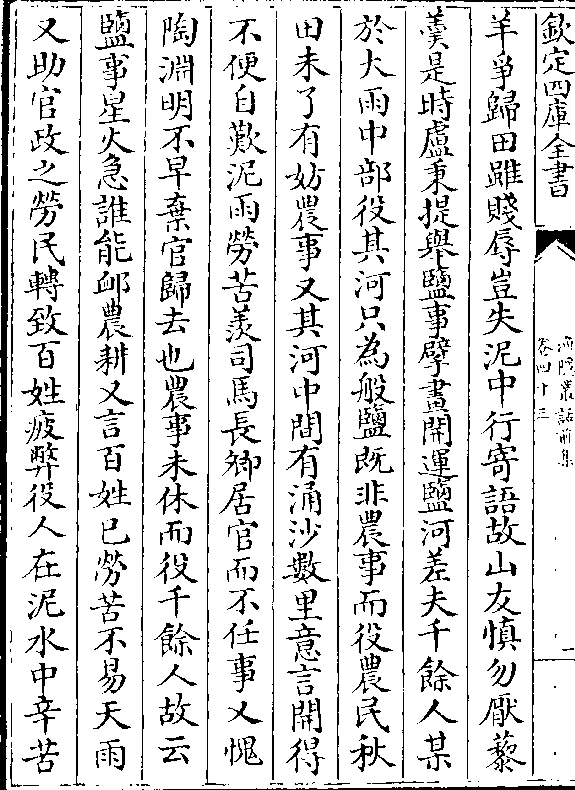 欽定四庫全書
漁隱叢話前集
卷四十三
一
羊爭歸田雖賤辱豈失泥中行寄語故山友慎勿厭藜
羹是時盧秉提舉鹽事擘畫開運鹽河差夫千餘人某
於大雨中部役其河只為般鹽既非農事而役農民秋
田未了有妨農事又其河中間有涌沙數里意言開得
不便自歎泥雨勞苦羨司馬長卿居官而不任事又愧
陶淵明不早棄官歸去也農事未休而役千餘人故云
鹽事星火急誰能䘏農耕又言百姓已勞苦不易天雨
又助官政之勞民轉致百姓疲弊役人在泥水中辛苦